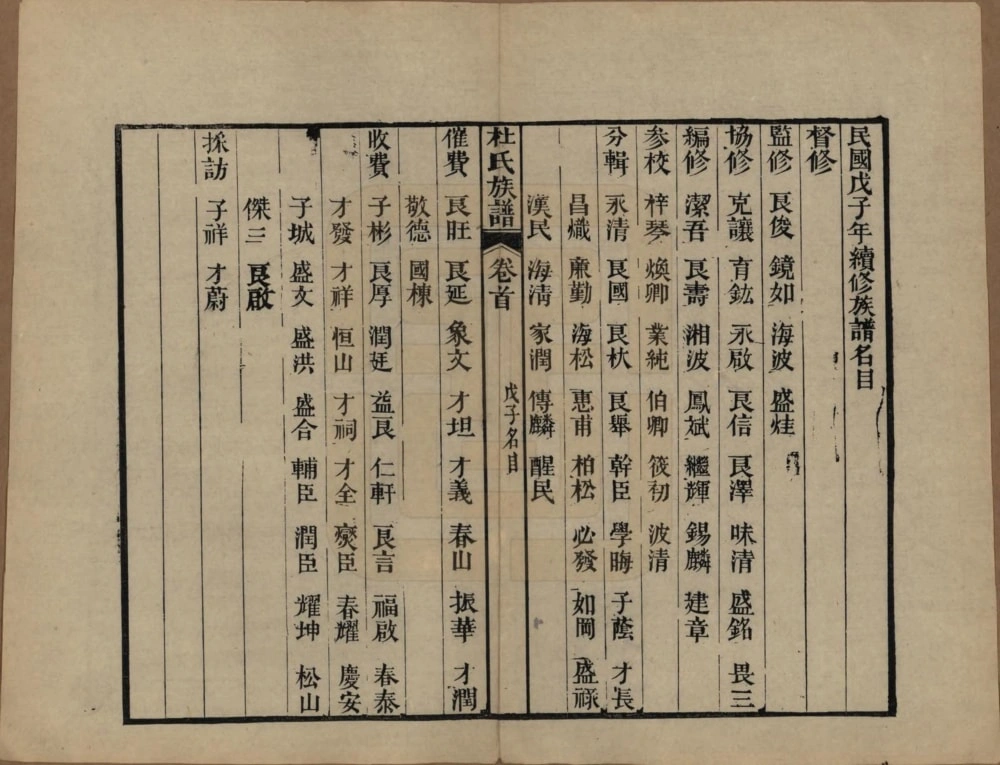 民國戊子年續修族譜名目
督修
監修 艮俊 鏡如 海波 盛烓
協修 克讓 育鈜 永啟 艮信 艮澤 味清 盛銘 畏三
編修 潔吾 艮壽 湘波 鳳斌 繼輝 錫麟 建章
参校 梓琴 煥卿 業純 伯卿 筱初 波清
分輯 永清 艮國 艮杕 艮舉 幹臣 學晦 子蔭 才長
昌熾 廉勤 海松 惠甫 柏松 必發 如岡 盛祿
漢民 海清 家潤 傳麟 醒民
杜氏族譜 卷首 戊子名目
催費 艮旺 艮延 象文 才坦 才義 春山 振華 才潤
敬德 國棟
收費 子彬 艮厚 潤廷 益艮 仁軒 艮言 福啟 春泰
才發 才祥 恒山 才祠 才全 爕臣 春耀 慶安
子城 盛文 盛洪 盛合 輔臣 潤臣 耀坤 松山
傑三 艮啟
採訪 子祥 才蔚